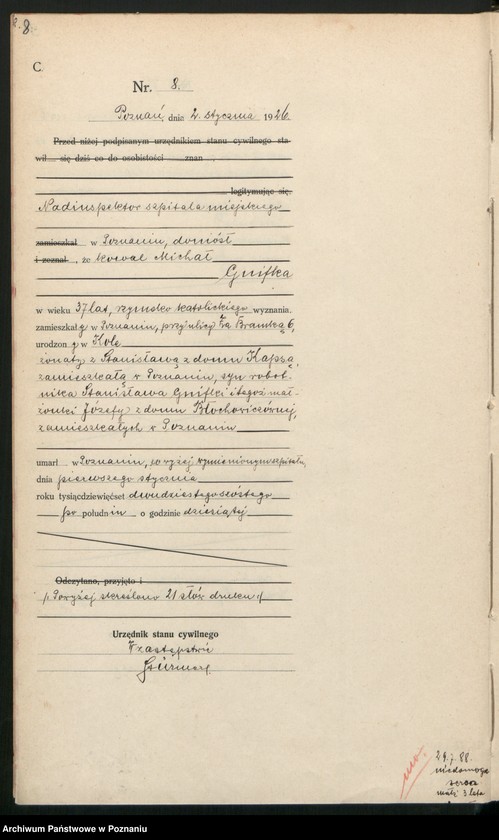 8.
8.
C.
Nr. 8.
Poznań, dnia 2. stycznia 1926
Przed niżej podpisanym urzędnikiem stanu cywilnego sta-
wił się dziś co do osobistości znan
legitymując się,
Nadinspektor szpitala miejskiego
zamieszkał w Poznaniu, doniósł
i zeznał, że kowal Michał
Gnifka
w wieku 37 lat, rzymsko katolickiego wyznania.
zamieszkały w Poznaniu, przy ulicy Za Bramką 6,
urodzony w Kole
żonaty z Stanisławą z domu Kapsą,
zamieszkałą w Poznaniu, syn robot-
nika Stanisława Gnifki i tegoż mał-
żonki Józefy z domu Błochowiczównej,
zamieszkałych w Poznaniu
umarł w Poznaniu, w wyżej wymienionym szpitalu,
dnia pierwszego stycznia
roku tysiącdziewięćset dwudziestegoszóstego
po południu o godzinie dziesiątej
Odczytano, przyjęto i
Powyżej skreślono 21 słów druku
Urzędnik stanu cywilnego
W zastępstwie
29. 7. 88.
niedomoga
serca
Archiwum Państwowe w Poznaniu